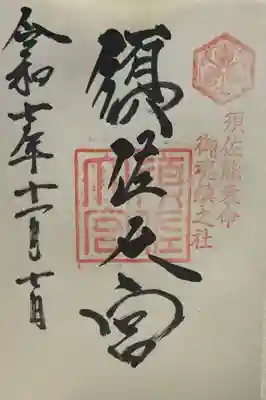 須佐能袁命
御魂鎮之社
須佐大宮
令和七年十一月七日